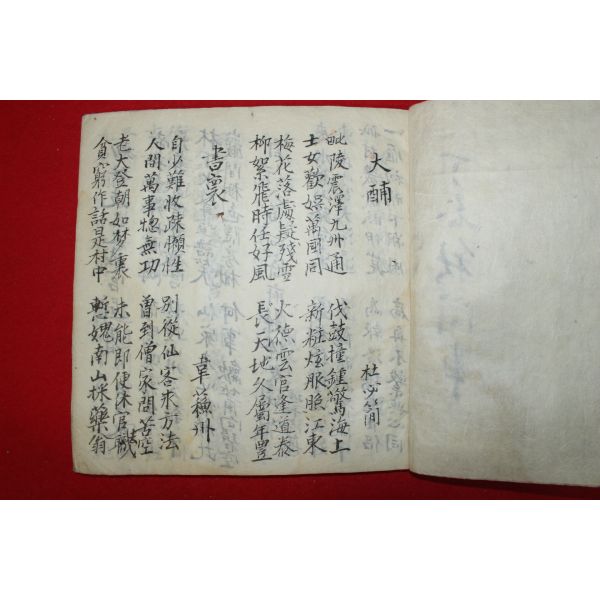 大酺
杜必簡
毗陵震澤九州通
士女歡娛萬國同
伐鼓撞鍾驚海上
新粧炫服照江東
梅花落處疑殘雪
柳絮飛時任好風
火德雲官逢道泰
長天地久屬年豊
書褱
韋蘇州
自少難收疎懶性
人間萬事揔無功
別從仙客求方法
曾到僧家問苦空
老大登朝如梦裏
貧窮作話是村中
未能即便休官職
慙愧南山採藥翁